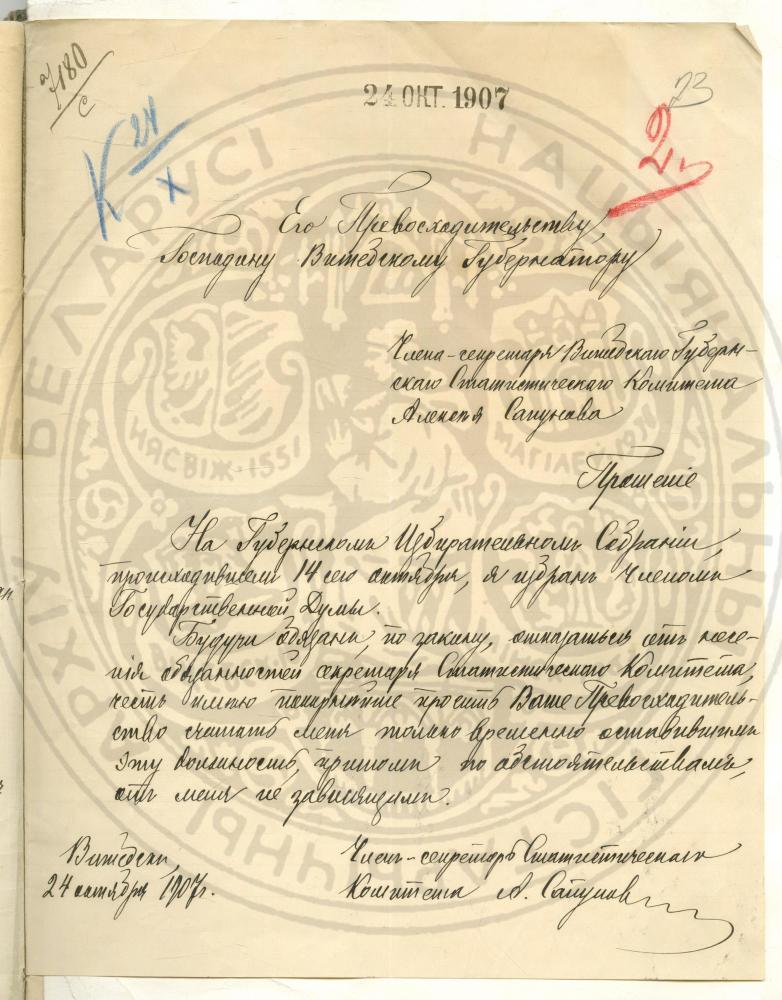 7180
с
К 24
X
24 ОКТ. 1907
73
2
Его Превосходительству,
Господину Витебскому Губернатору
Члена-секретаря Витебскаго Губерн-
скаго Статистическаго Комитета
Алексѣя Сапунова
Прошеніе
На Губернскомъ Избирательномъ Собраніи,
происходившемъ 14 сего октября, я избранъ Членомъ
Государственной Думы.
Будучи обязанъ, по закону, отказаться отъ несе-
нія обязанностей секретаря Статистическаго Комитета,
честь имѣю покорнѣйше просить Ваше Превосходитель-
ство считать меня только временно оставившимъ
эту должность, притомъ по обстоятельствамъ,
отъ меня не зависящимъ.
Витебскъ,
24 октября 1907г.
Членъ-секретарь Статистическаго
Комитета А. Сапуновъ
НЯСВІЖ-1551
БЕЛАРУСІ
НАЦЫЯНАЛЬНЫ